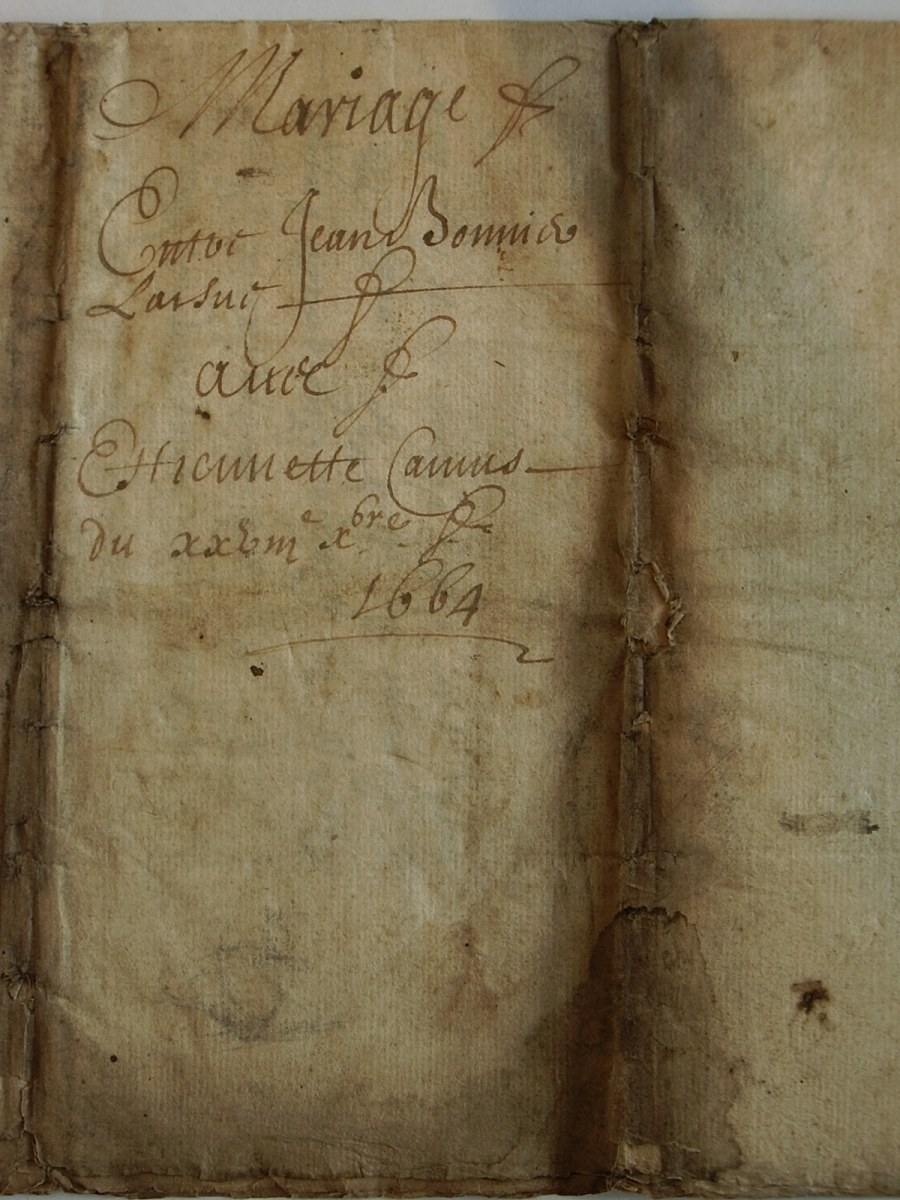 Mariage
Entre Jean Bonnier
Laisne
auec
Estiennette Camus
du xxviij^e x^bre
1664